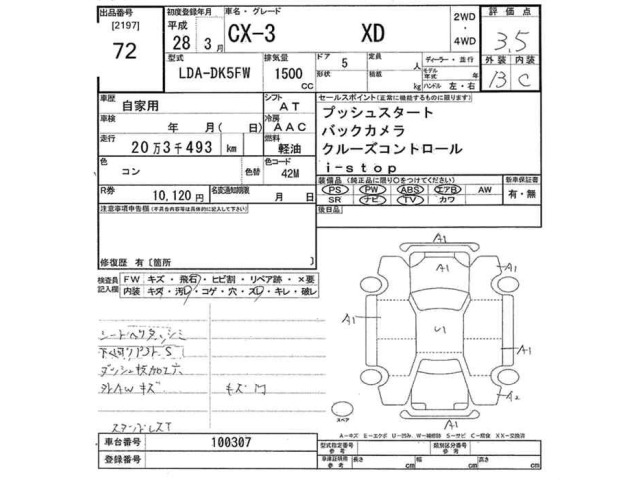 出品番号 初度登録年月 車名・グレード 2WD 評価点
[2197] 平成 CX-3 XD ・ 3.5
72 28 3月 4WD 外装 内装
型式 排気量 ドア 定員 ディーラー・並行 B C
LDA-DK5FW 1500 CC 5 人 モデル年式 年
形状 積載 kg ハンドル 左・右
車歴 自家用 シフト AT セールスポイント(正常に機能するものに限ります)
車検 年 月( 日) 冷房 AAC プッシュスタート
走行 20万3千493 km 燃料 軽油 バックカメラ
クルーズコントロール
色 コン 色替 色コード 42M i-stop
R券 10,120円 名変期限 月 日 装備品(純正品に限り○をつけてください) 新車保証書
PS PW ABS エアB AW 有・無
SR ナビ TV カワ
注意事項申告欄 後日品
修復歴 有[箇所 ]
検査員記入欄 FW キズ・飛石・ヒビ割・リペア跡・×要
内装 キズ・汚レ・コゲ・穴・スレ・キレ・破レ
A1
A1 A1
A1 U1 A1
A2
A1
シートヘタリ シミ
ダッシュ板加工穴
外AWキズ キズ
スタンドレスT
スペア
A-キズ E-エクボ U-凹み W-補修跡 S-サビ C-腐食 XX-交換済
車台番号 100307 型式指定番号 参考 類別区分番号 参考
登録番号 車庫証明用 参考 長さ cm 幅 cm 高さ cm